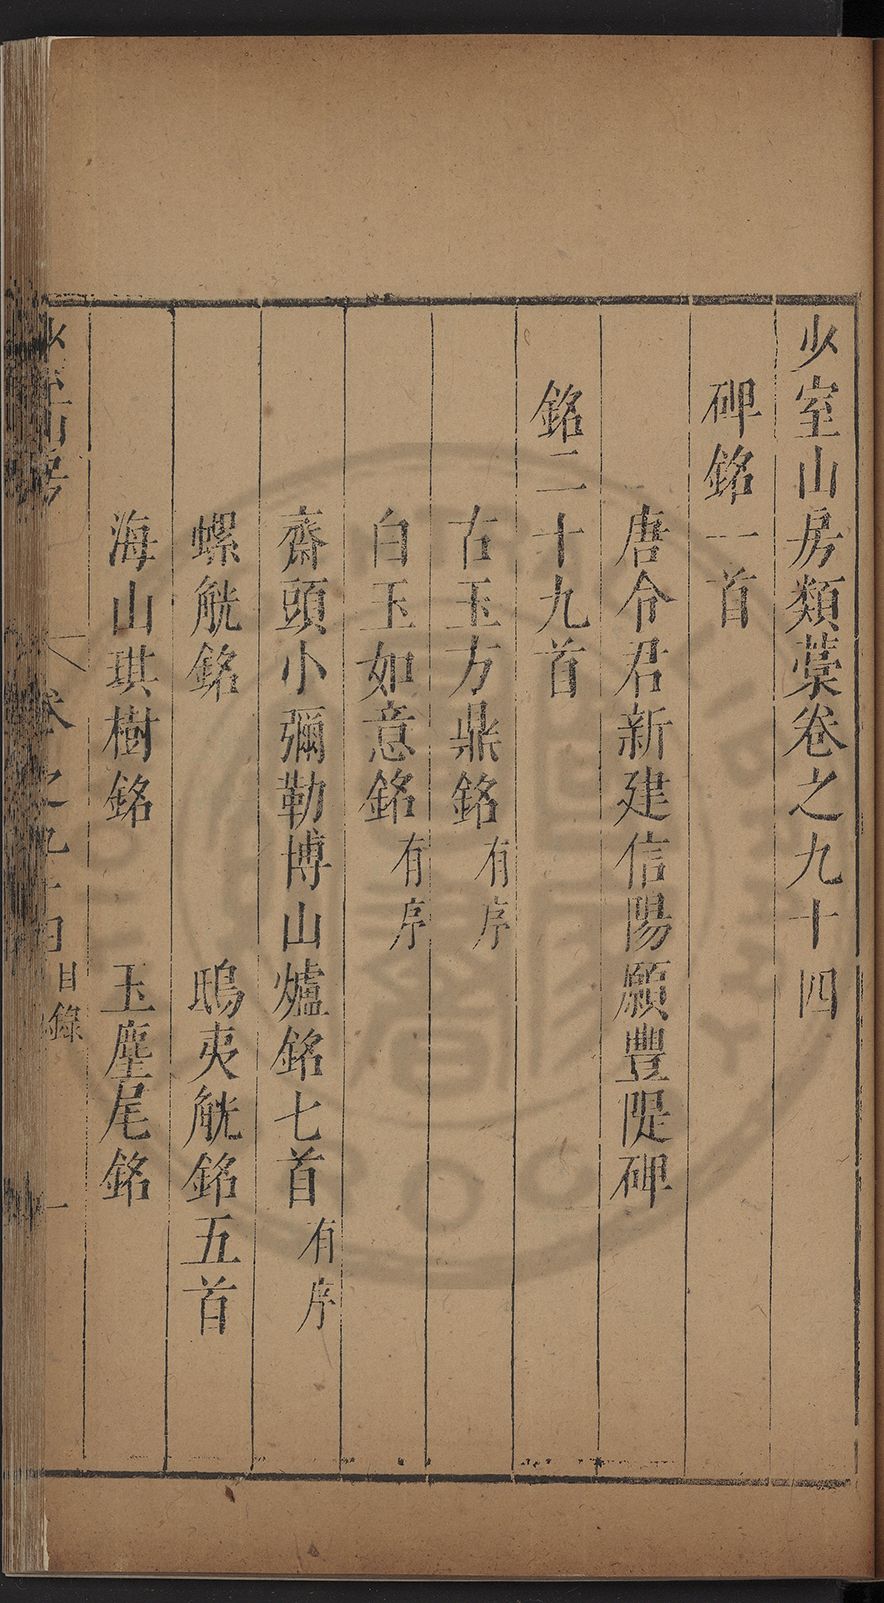 少室山房類藁卷之九十四
碑銘一首
唐令君新建信陽願豐隄碑
銘二十九首
古玉方鼎銘有序
白玉如意銘有序
齋頭小彌勒博山爐銘七首有序
螺觥銘　鴟夷觥銘五首
海山琪樹銘　玉麈尾銘
少室山房　卷之九十四　目錄　一